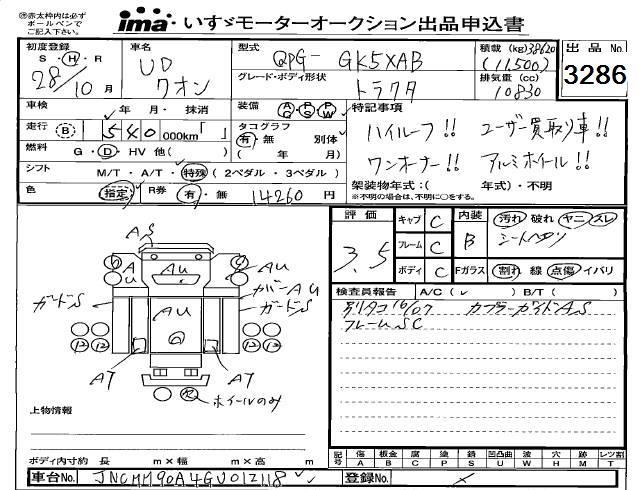 ㊟赤太枠内は必ず
ボールペンで
ご記入下さい。
ima いすゞモーターオークション出品申込書
初度登録 S・H・R 28/10月
車名 UD クオン
型式 QPG- GK5XAB
積載(kg) 38620 (11,500)
グレード・ボディ形状 トラクタ
排気量(cc) 10830
出品No. 3286
車検 年 月・抹消
装備 AC PS PW
特記事項
走行 B 540 000km「 」
タコグラフ 有・無 別体 ( 年 月)
ハイルーフ!! ユーザー買取り車!!
燃料 G・D・HV 他( )
ワンオーナー!! アルミホイール!!
シフト M/T・A/T・特殊(2ペダル・3ペダル)
架装物年式:( 年式)・不明
色 指定 R券 有・無 14260円
※不明の場合は、不明に○をする。
評価 3.5
キャブ C
フレーム C
ボディ C
内装 B 汚れ 破れ ヤニ スレ
Fガラス 割れ 線 点傷 イバリ
検査員報告 A/C( ) B/T( )
別タコ16/07 カプラーガイドAS
フレームSC
AS
AU
A
AU
カバーAU
AU
ガードS
ガードS
12 12 12 12
AT AT
ホイールのみ
上物情報
ボディ内寸約 長 m×幅 m×高 m
記号 傷A 板金B 腐C 塗P 錆S 凹凸曲U 波W 穴H 跡M レツ割T
車台No. JNCMM90A4GU012118
登録No.